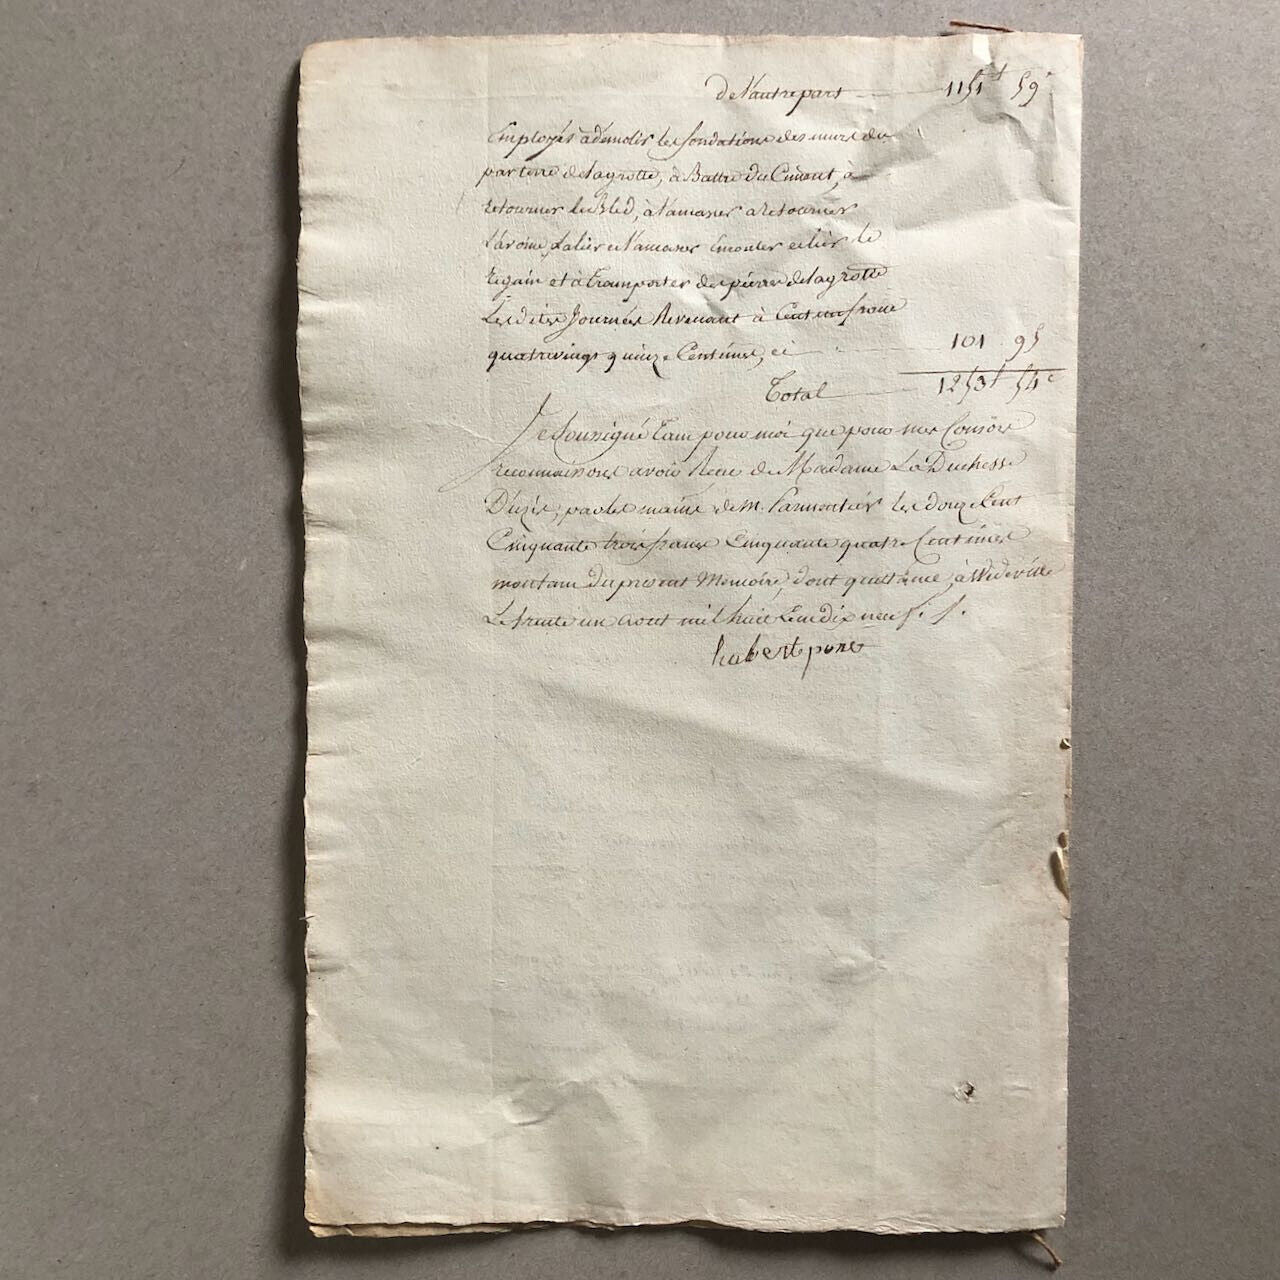 De l'autre part 1151f 59c
Employés à démolir les fondations des murs du
parterre de la grotte, à Battre du Ciment, à
retourner le Bled, à Ramasser a retourner
L'avoine, la lier et Ramasser Emonter et lier le
Regain et à transporter des pierres de la grotte
Les dites Journées Revenant à Cent un francs
quatrevingt quinze Centimes, ci 101 95
Total 1253f 54c
Je Soussigné tant pour moi que pour mes Consors
reconnaissons avoir Recu de Madame La Duchesse
D'uzès, par les mains de M. Parmentier les douze Cent
Cinquante trois francs Cinquante quatre Centimes
montant du présent Mémoire, dont quittance, à Wideville
Le trente un aout mil huit Cent dix neuf.
hubert